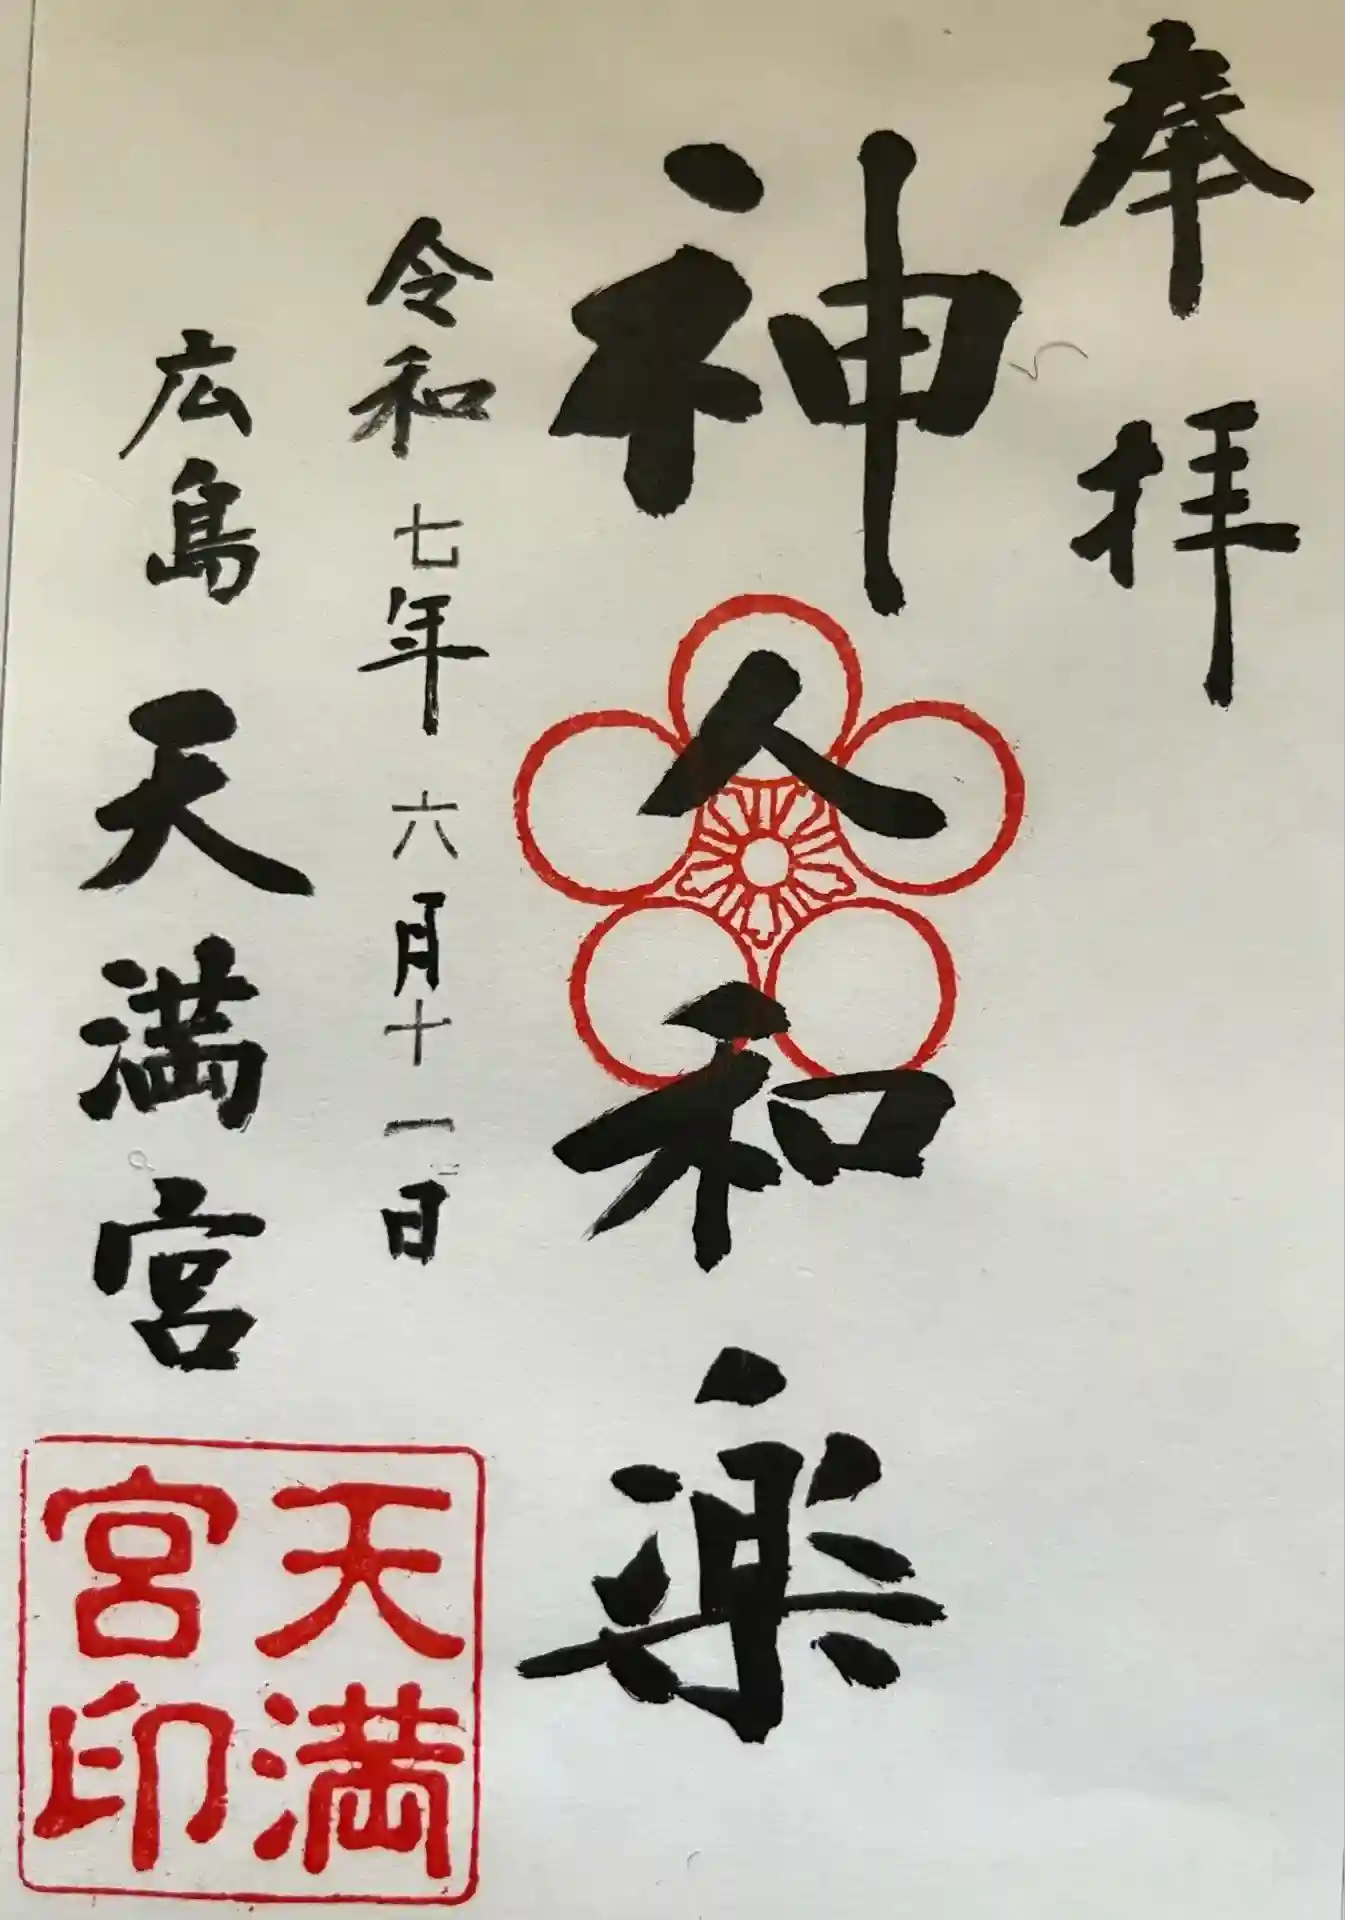 奉拝
神人和楽
令和七年六月十一日
広島天満宮
天満
宮印